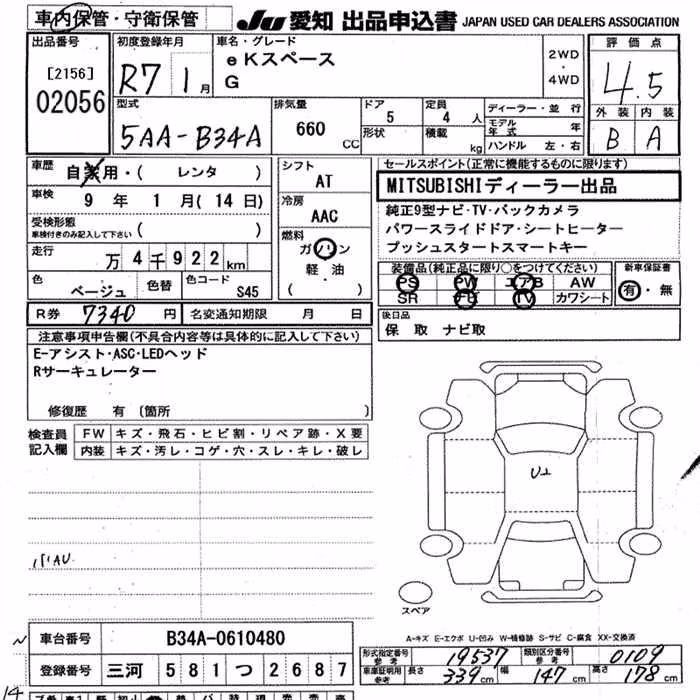 車内保管・守衛保管
JU 愛知 出品申込書 JAPAN USED CAR DEALERS ASSOCIATION
出品番号
[2156]
02056
初度登録年月
R7 1月
車名・グレード
eKスペース
G
2WD
・
4WD
評価点
4.5
外装 内装
B A
型式
5AA-B34A
排気量
660 CC
ドア
5
形状
定員
4 人
積載
kg
ディーラー・並行
モデル年式 年
ハンドル 左・右
車歴 自家用・( レンタ )
車検 9年 1月(14日)
受検形態
車検付きのみ記入して下さい ( )
走行 万4千922km
色 ベージュ 色替 色コード S45
シフト
AT
冷房
AAC
燃料
ガソリン
軽油
( )
セールスポイント(正常に機能するものに限ります)
MITSUBISHIディーラー出品
純正9型ナビ・TV・バックカメラ
パワースライドドア・シートヒーター
プッシュスタートスマートキー
装備品(純正品に限り○をつけてください)
PS PW エアB AW
SR ナビ TV カワシート
新車保証書
有・無
R券 7340 円 名変通知期限 月 日
後日品
保 取 ナビ取
注意事項申告欄(不具合内容等は具体的に記入して下さい)
E-アシスト・ASC・LEDヘッド
Rサーキュレーター
修復歴 有 〔箇所
検査員
記入欄
FW キズ・飛石・ヒビ割・リペア跡・X要
内装 キズ・汚レ・コゲ・穴・スレ・キレ・破レ
スペア
A-キズ E-エクボ U-凹み W-補修跡 S-サビ C-腐食 XX-交換済
車台番号 B34A-0610480
登録番号 三河 581 つ 2687
型式指定番号 参考 19537 類別区分番号 参考 0109
車庫証明用 参考 長さ 339cm 幅 147cm 高さ 178cm
14